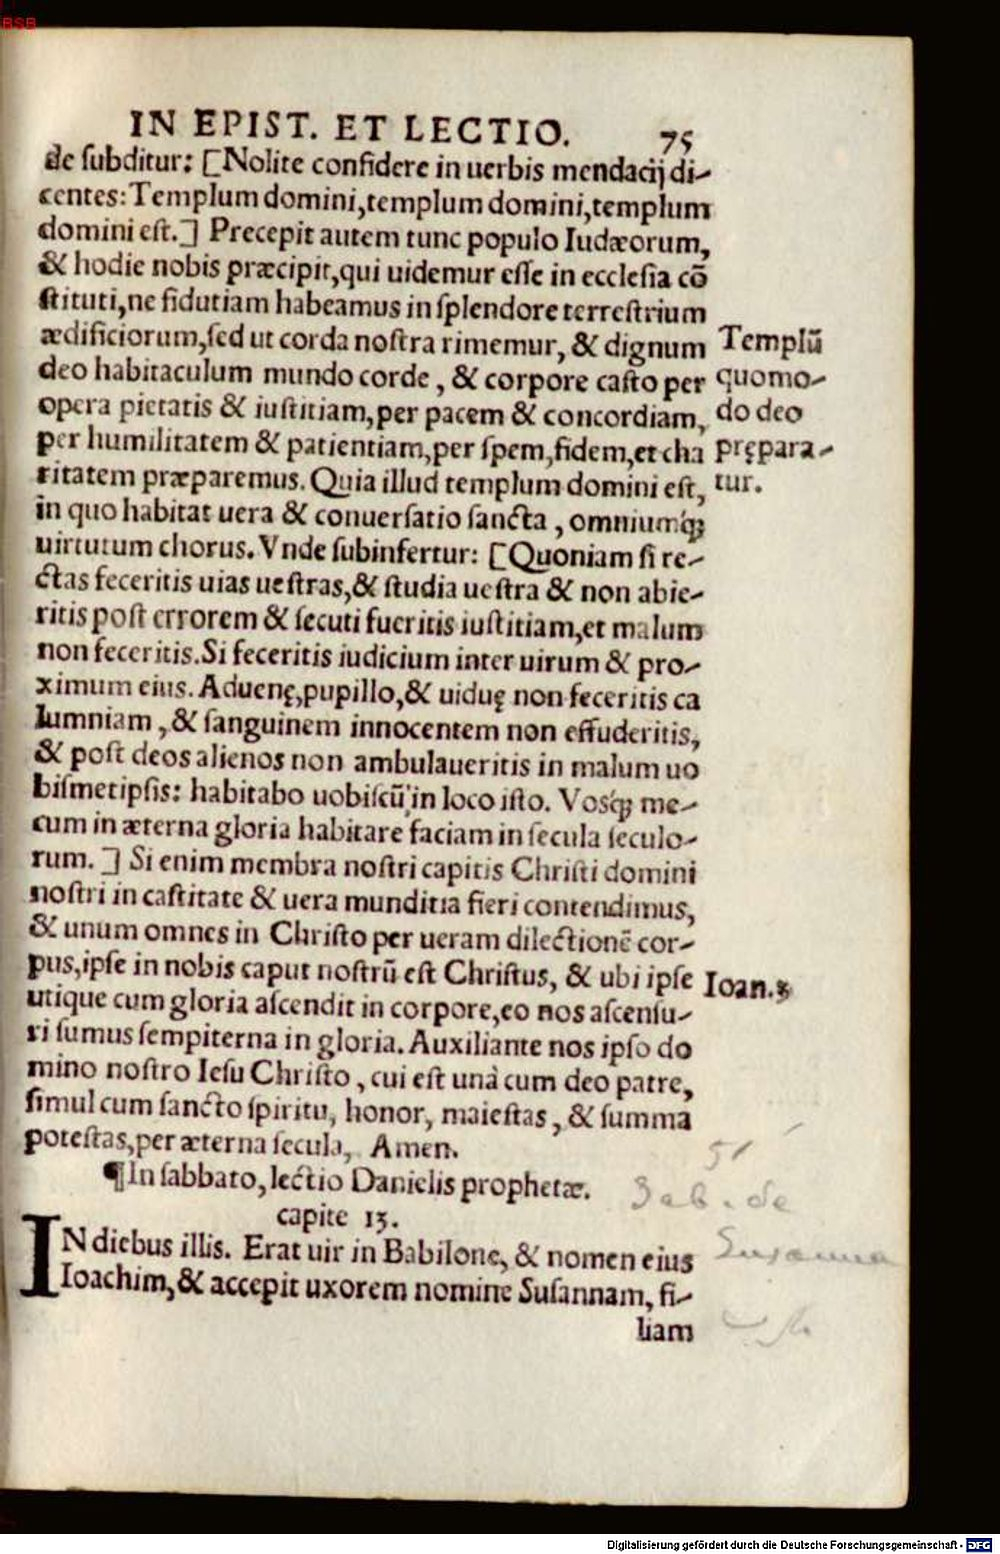 BSB
IN EPIST. ET LECTIO. 75
de ſubditur: [Nolite confidere in uerbis mendacij di-
centes: Templum domini, templum domini, templum
domini eſt.] Precepit autem tunc populo Iudæorum,
& hodie nobis præcipit, qui uidemur eſſe in eccleſia cō
ſtituti, ne fidutiam habeamus in ſplendore terreſtrium
ædificiorum, ſed ut corda noſtra rimemur, & dignum
deo habitaculum mundo corde, & corpore caſto per
opera pietatis & iuſtitiam, per pacem & concordiam,
per humilitatem & patientiam, per ſpem, fidem, et cha
ritatem præparemus. Quia illud templum domini eſt,
in quo habitat uera & conuerſatio ſancta, omniumq́ꝫ
uirtutum chorus. Vnde ſubinfertur: [Quoniam ſi re-
ctas feceritis uias ueſtras, & ſtudia ueſtra & non abie-
ritis poſt errorem & ſecuti fueritis iuſtitiam, et malum
non feceritis. Si feceritis iudicium inter uirum & pro-
ximum eius. Aduenę, pupillo, & uiduę non feceritis ca
lumniam, & ſanguinem innocentem non effuderitis,
& poſt deos alienos non ambulaueritis in malum uo
biſmetipſis: habitabo uobiſcū in loco iſto. Vosq́ꝫ me-
cum in æterna gloria habitare faciam in ſecula ſeculo-
rum.] Si enim membra noſtri capitis Chriſti domini
noſtri in caſtitate & uera munditia fieri contendimus,
& unum omnes in Chriſto per ueram dilectionē cor-
pus, ipſe in nobis caput noſtrū eſt Chriſtus, & ubi ipſe
utique cum gloria aſcendit in corpore, eo nos aſcenſu-
ri ſumus ſempiterna in gloria. Auxiliante nos ipſo do
mino noſtro Ieſu Chriſto, cui eſt unà cum deo patre,
ſimul cum ſancto ſpiritu, honor, maieſtas, & ſumma
poteſtas, per æterna ſecula, Amen.
¶In ſabbato, lectio Danielis prophetæ.
capite 13.
IN diebus illis. Erat uir in Babilone, & nomen eius
Ioachim, & accepit uxorem nomine Suſannam, fi-
liam
Templū
quomo-
do deo
prępara-
tur.
Ioan. 3
51
Sab. de
Susanna
Digitalisierung gefördert durch die Deutsche Forschungsgemeinschaft - DFG